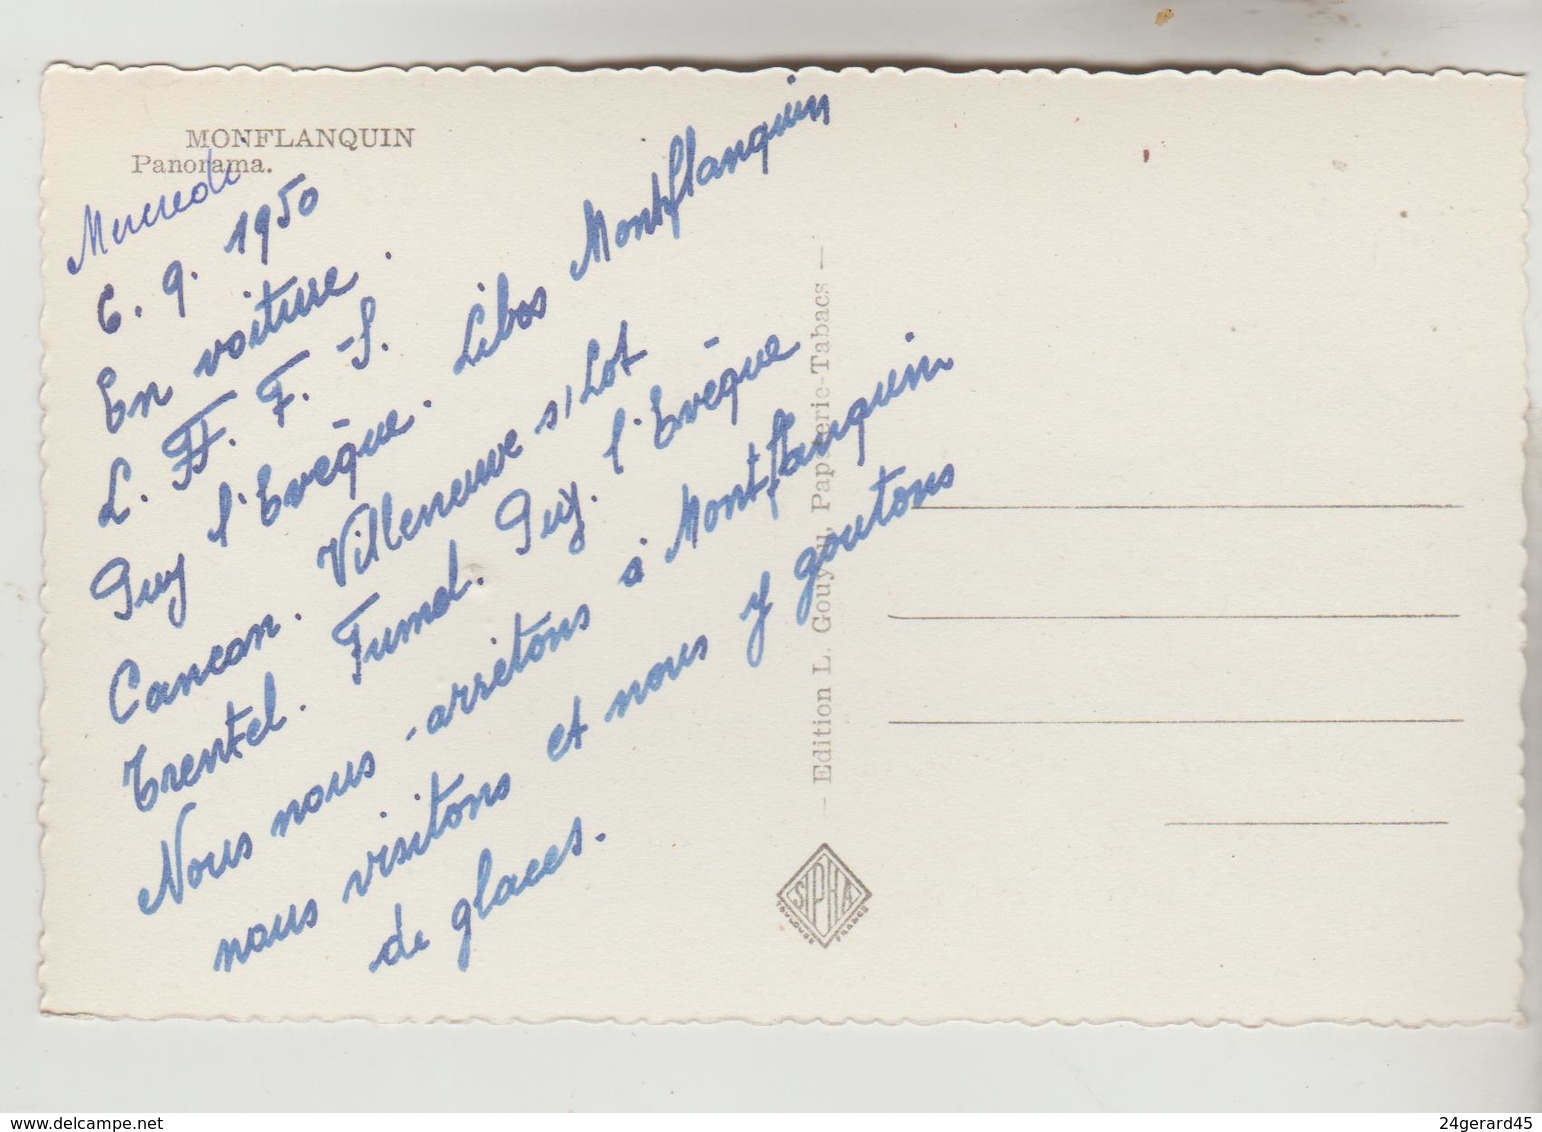 MONFLANQUIN
Panorama.
Mercredi
6. 9. 1950
En voiture.
L. F. F. -S.
Puy l'Evêque. Libos Montflanquin
Cancon. Villeneuve s/Lot
Trentel. Fumel. Puy. l'Evêque
Nous nous arrêtons à Montflanquin
nous visitons et nous y goutons
de glaces.
— Edition L. Gouyou, Papeterie-Tabacs —
SIPHA
TOULOUSE FRANCE
www.delcampe.net
24gerard45